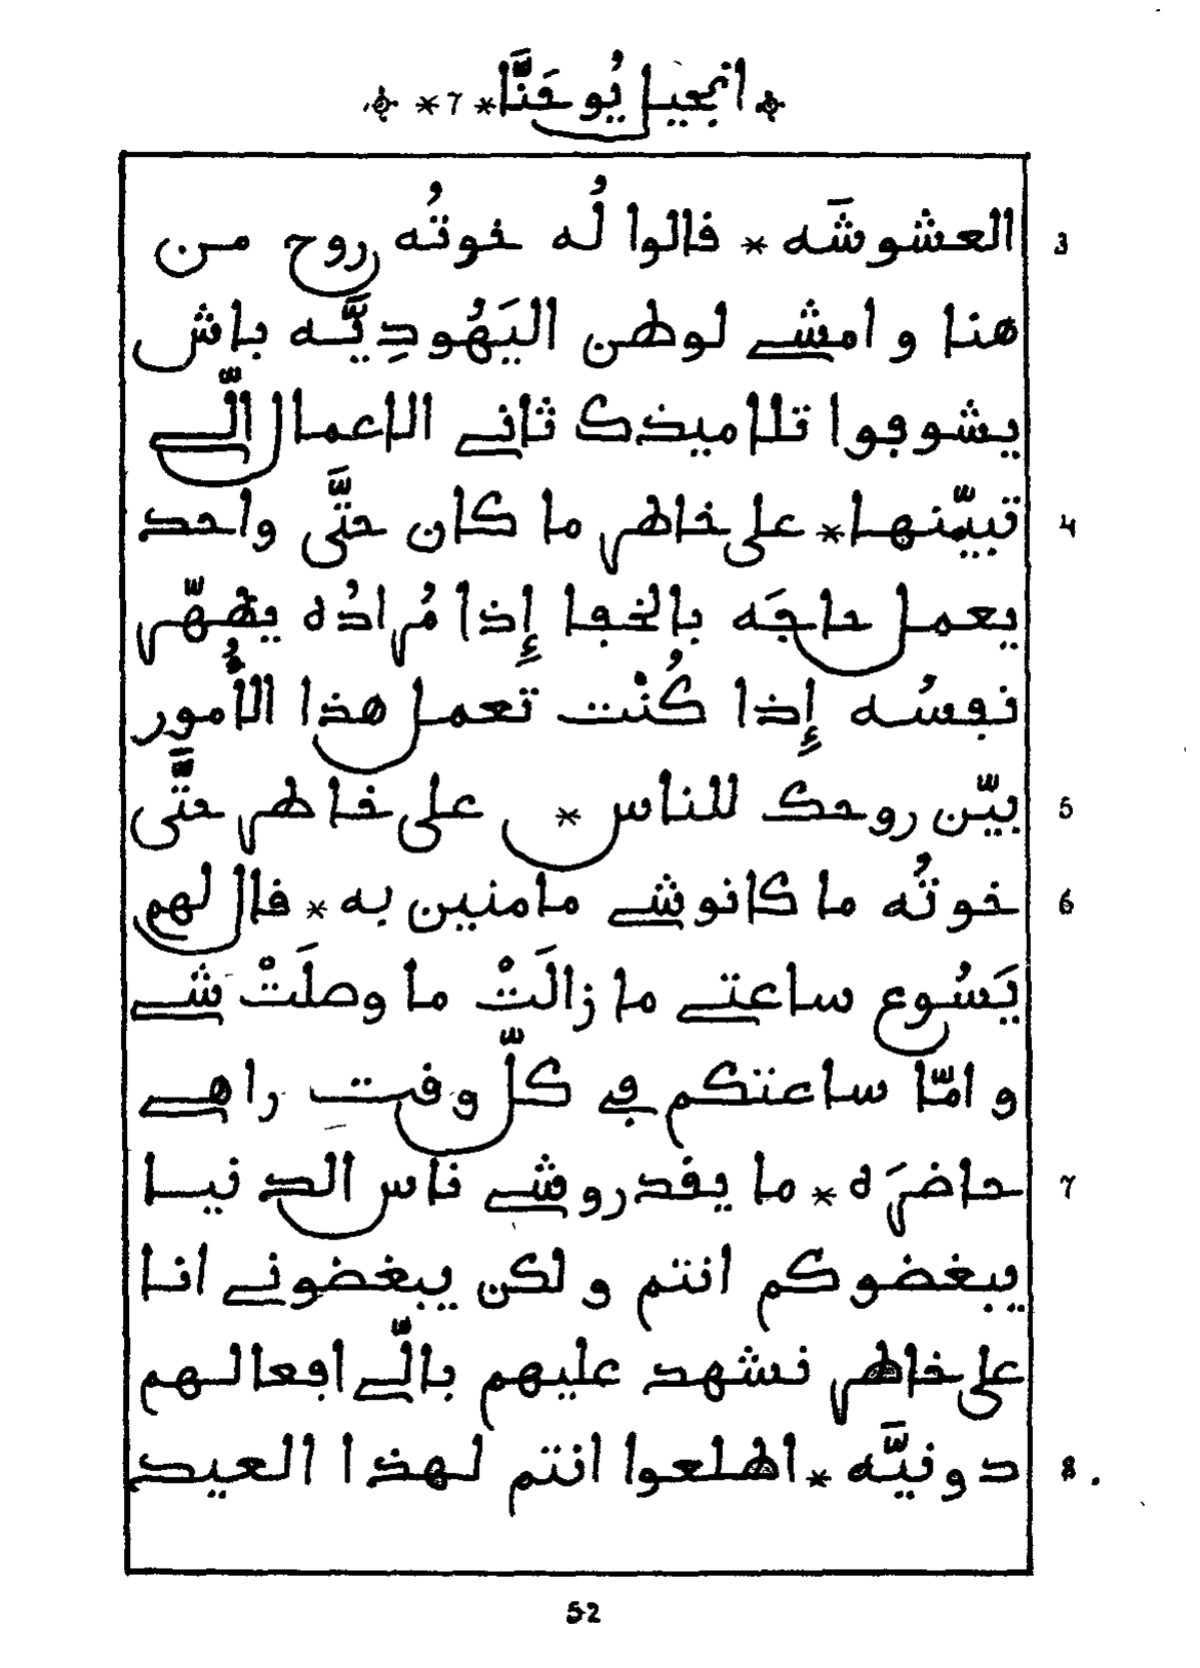 انجيل يُوحَنَّا * ٧ *
3 العشوشَه * فالوا لُه خوتُه روح من
هنا و امشے لوطن اليَهُودِيَّه باش
يشوڢوا تلاميذك ثانے الاعمال الّے
4 تبيّنها * على خاطر ما كان حتَّى واحد
يعمل حاجَه بالخڢا إِذا مُرادُه يظهّر
نڢسُه إِذا كُنْت تعمل هذا الأُمور
5 بيّن روحك للناس * على خاطر حتَّى
6 خوتُه ما كانوشے مامنين به * فال لهم
يَسُوع ساعتے ما زالَتْ ما وصلَتْ شے
و امّا ساعتكم ڢے كلّ وفتِ راهے
7 حاضرَه * ما يفدروشے ناس الدنيا
يبغضوكم انتم و لكن يبغضونے انا
على خاطر نشهد عليهم بالّے اڢعالهم
8 دونيَّه * اطلعوا انتم لهذا العيد
52